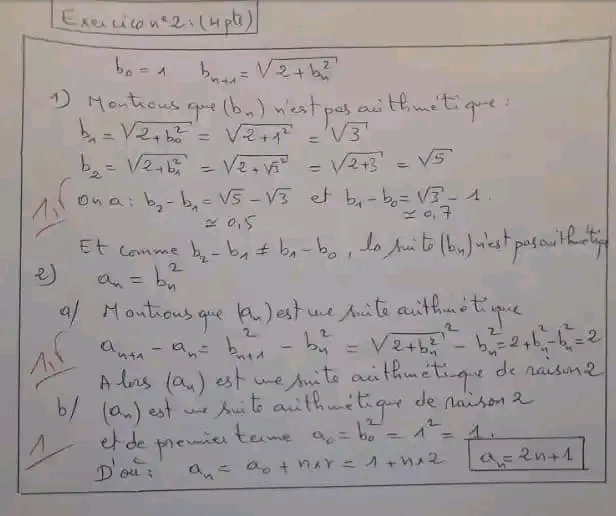 Exercice n°2: (4 pts)
b₀ = 1 bₙ₊₁ = √(2 + bₙ²)
1) Montrons que (bₙ) n'est pas arithmétique :
b₁ = √(2 + b₀²) = √(2 + 1²) = √3
b₂ = √(2 + b₁²) = √(2 + √3²) = √(2 + 3) = √5
1,5 On a : b₂ - b₁ = √5 - √3 et b₁ - b₀ = √3 - 1.
≃ 0,5 ≃ 0,7
Et comme b₂ - b₁ ≠ b₁ - b₀, la suite (bₙ) n'est pas arithmétique
2) aₙ = bₙ²
a/ Montrons que (aₙ) est une suite arithmétique
1,5 aₙ₊₁ - aₙ = bₙ₊₁² - bₙ² = √(2 + bₙ²)² - bₙ² = 2 + bₙ² - bₙ² = 2
Alors (aₙ) est une suite arithmétique de raison 2
b/ (aₙ) est une suite arithmétique de raison 2
1 et de premier terme a₀ = b₀² = 1² = 1.
D'où : aₙ = a₀ + n×r = 1 + n×2 aₙ = 2n + 1